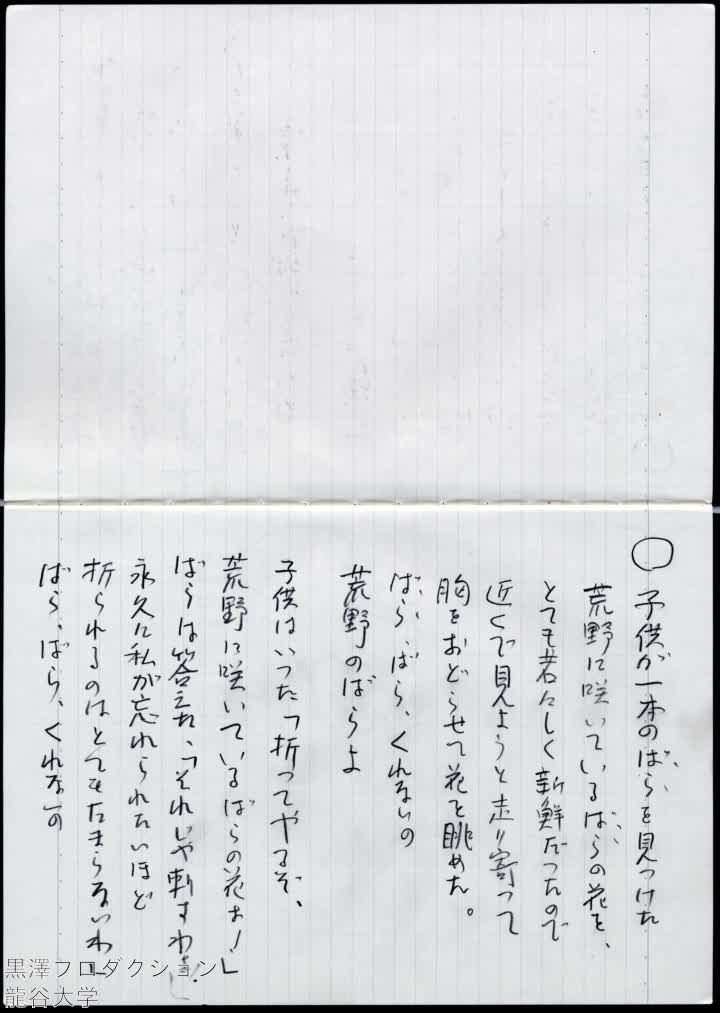 ○ 子供が一本のばらを見つけた
荒野に咲いているばらの花を、
とても若々しく新鮮だったので
近くで見ようと走り寄って
胸をおどらせて花を眺めた。
ばら、ばら、くれないの
荒野のばらよ
子供はいった「折ってやるぞ、
荒野に咲いているばらの花お!」
ばらは答えた、「それじゃ刺すわ!
永久に私が忘れられないほど
折られるのはとてもたまらないわ」
ばら、ばら、くれないの
黒澤プロダクション
龍谷大学